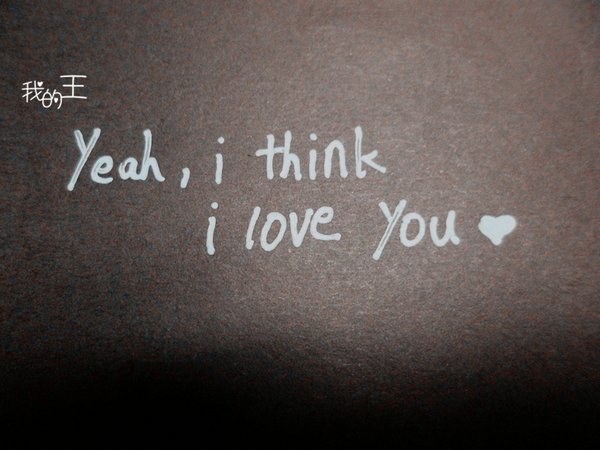 我的王
Yeah, i think
i love you